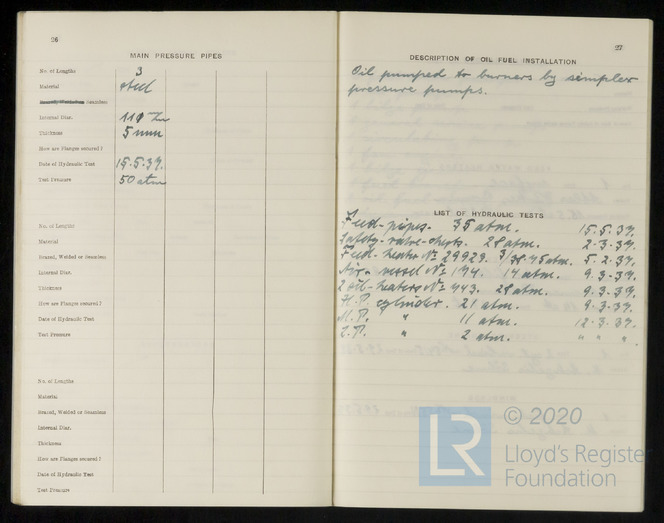 26
MAIN PRESSURE PIPES
No. of Lengths 3
Material steel
Seamless
Internal Diar.
Thickness 5 mm
How are Flanges secured?
Date of Hydraulic Test 15.5.37.
Test Pressure 50 atm
No. of Lengths
Material
Brazed, Welded or Seamless
Internal Diar.
Thickness
How are Flanges secured?
Date of Hydraulic Test
Test Pressure
No. of Lengths
Material
Brazed, Welded or Seamless
Internal Diar.
Thickness
How are Flanges secured?
Date of Hydraulic Test
Test Pressure
27
DESCRIPTION OF OIL FUEL INSTALLATION
Oil pumped to burners by simplex
pressure pumps.
LIST OF HYDRAULIC TESTS
Feed-pipes. 35 atm. 15.5.37.
Safety-valve-chests. 28 atm. 2.3.37.
Feed-heater No 29929. 5.2.37.
Air-vessel No 174. 14 atm. 9.3.37.
2 oil-heaters No 443. 28 atm. 9.3.37.
H.P. cylinder. 21 atm. 9.3.37.
M.P. " 11 atm. 12.3.37.
L.P. " 2 atm. " " "
LR © 2020
Lloyd's Register
Foundation